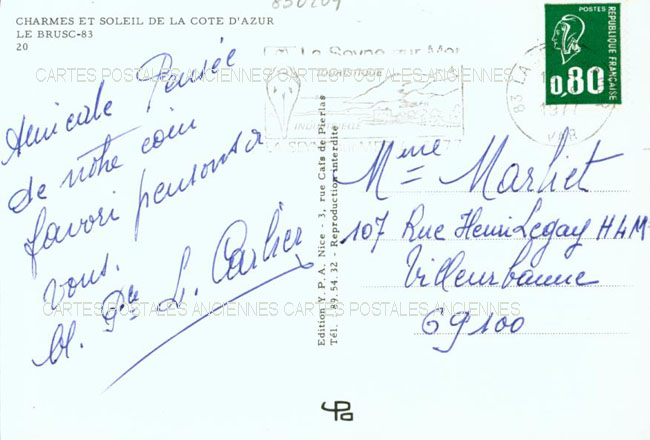 CHARMES ET SOLEIL DE LA COTE D'AZUR
LE BRUSC-83
20
830209
La Seyne sur Mer
CARTES POSTALES ANCIENNES CARTES POSTALES ANCIENNES
Amicale Pensée
de notre coin
favori pensons à
vous.
M. L. Carlier
Edition Y. P. A. Nice - 3, rue Caïs de Pierlas
Tél. 89.54.32 - Reproduction interdite
POSTES
REPUBLIQUE FRANÇAISE
0,80
83 LA
1977
VAR
Mme Marliet
107 Rue Henri Legay HLM
Villeurbanne
69100
CARTES POSTALES ANCIENNES CARTES POSTALES ANCIENNES